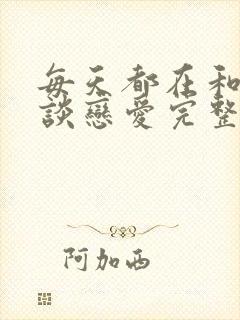 每天都在和
談戀愛完整
阿加西